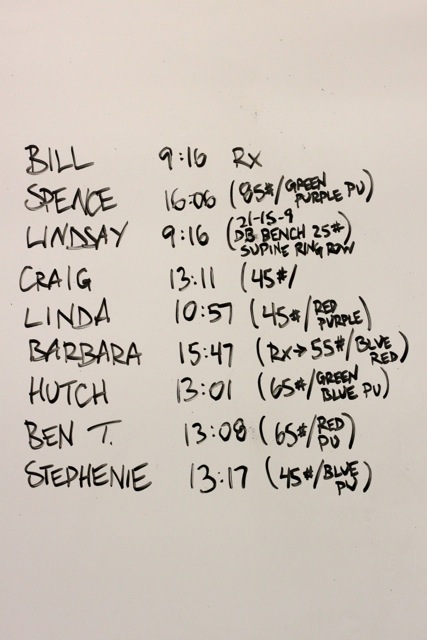 BILL 9:16 RX
SPENCE 16:06 (85#/GREEN PURPLE PU)
LINDSAY 9:16 (21-15-9 DB BENCH 25# SUPINE RING ROW)
CRAIG 13:11 (45#/
LINDA 10:57 (45#/RED PURPLE)
BARBARA 15:47 (RX→55#/BLUE RED)
HUTCH 13:01 (65#/GREEN BLUE PU)
BEN T. 13:08 (65#/RED PU)
STEPHENIE 13:17 (45#/BLUE PU)